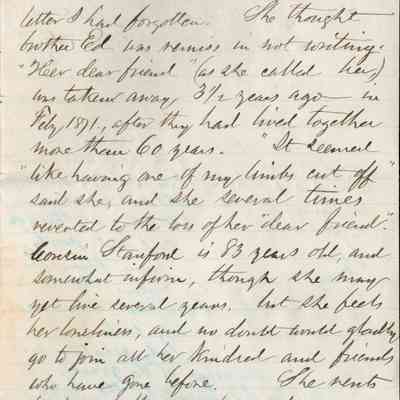 letter I had forgotten. She thought
brother Ed. was remiss in not writing.
"Her dear friend" (as she called her,)
was taken away, 3 1/2 years ago - in
Feby, 1871, after they had lived together
more than 60 years. "It seemed
"like having one of my limbs cut off"
said she, and she several times
reverted to the loss of her "dear friend".
Cousin Stanford is 83 years old, and
somewhat infirm, though she may
yet live several years. but she feels
her loneliness, and no doubt would gladly
go to join all her kindred and friends
who have gone before. She rents